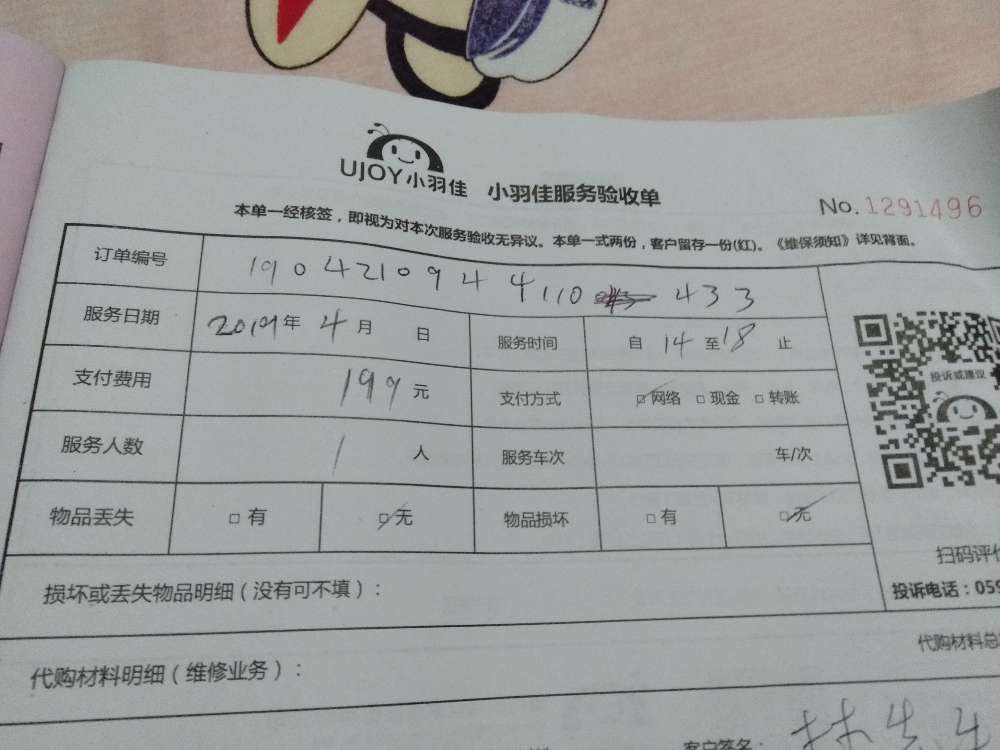 UJOY小羽佳 小羽佳服务验收单
No. 1291496
本单一经核签，即视为对本次服务验收无异议。本单一式两份，客户留存一份(红)。《维保须知》详见背面。
订单编号 1904210944110 433
服务日期 2019年 4月 日 服务时间 自 14 至 18 止
支付费用 199元 支付方式 网络 现金 转账
服务人数 1 人 服务车次 车/次
物品丢失 有 无 物品损坏 有 无
投诉或建议
扫码评价
投诉电话：059
损坏或丢失物品明细（没有可不填）：
代购材料总
代购材料明细（维修业务）：
客户签名： 林先生